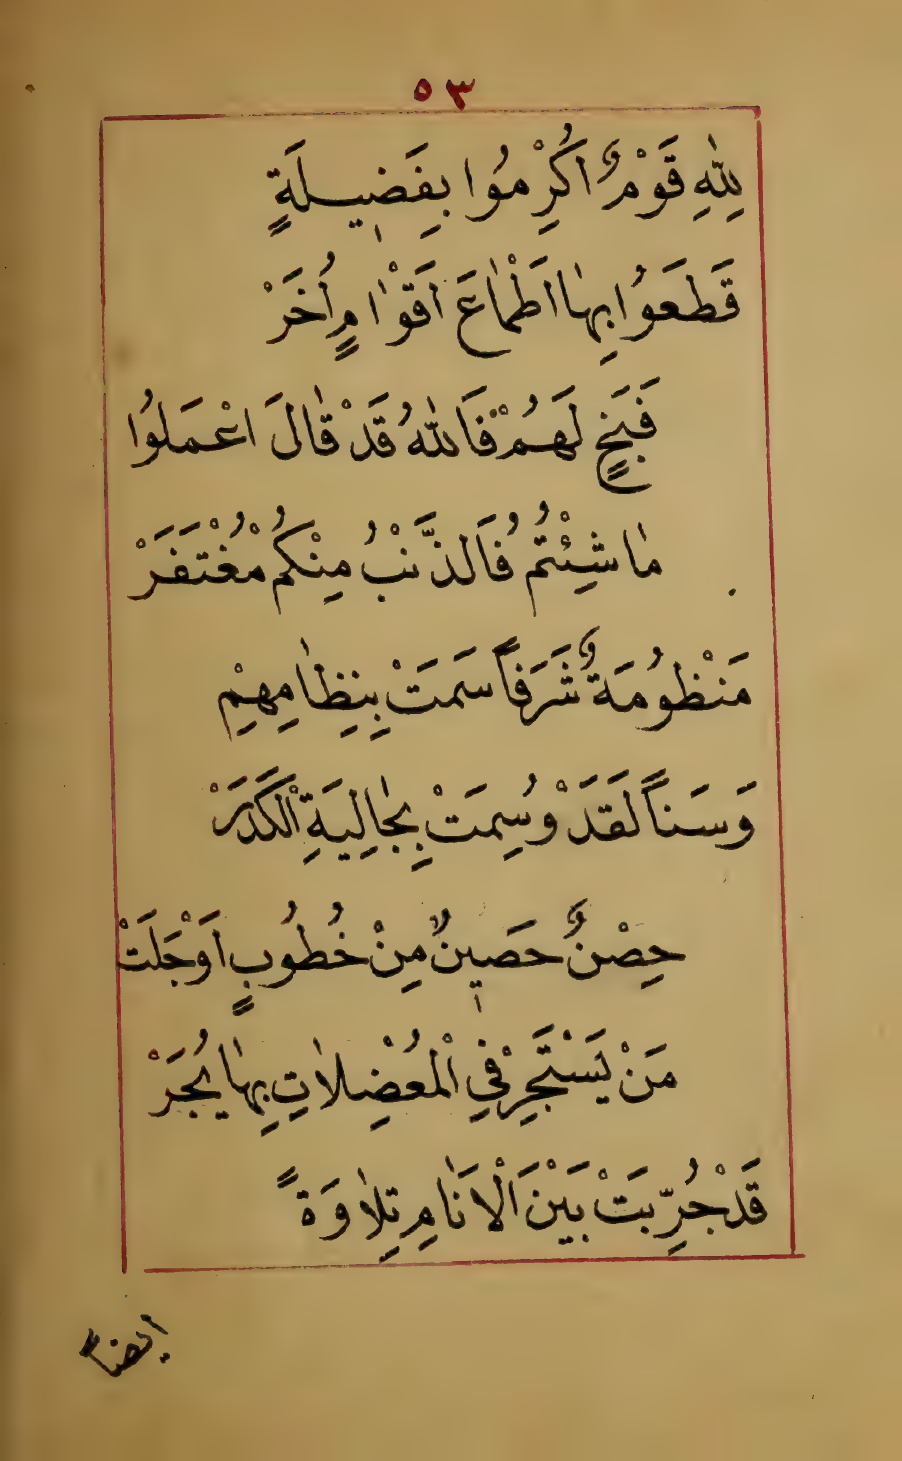 ٥٣
لِلّٰهِ قَوْمٌ اُكْرِمُوا بِفَضٖيلَةٍ
قَطَعَوُا بِهٰا اَطْمٰاعَ اَقْوٰامٍ اُخَرْ
فَبَخٍ لَهُمْ فَاللّٰهُ قَدْ قٰالَ اعْمَلُوا
مٰا شِئْتُمُ فَالذَّنْبُ مِنْكُمْ مُغْتَفَرْ
مَنْظُومَةٌ شَرَفاً سَمَتْ بِنِظٰامِهِمْ
وَسَناً لَقَدْ وُسِمَتْ بِجٰالِيَةِ الْكَدَرْ
حِصْنٌ حَصٖينٌ مِنْ خُطُوبٍ اَوْجَلَتْ
مَنْ يَسْتَجِرْ فِي الْمُعْضِلاٰتِ بِهٰا يُجَرْ
قَدْ جُرِّبَتْ بَيْنَ الْاَنٰامِ تِلاٰوَةً
ايضاً